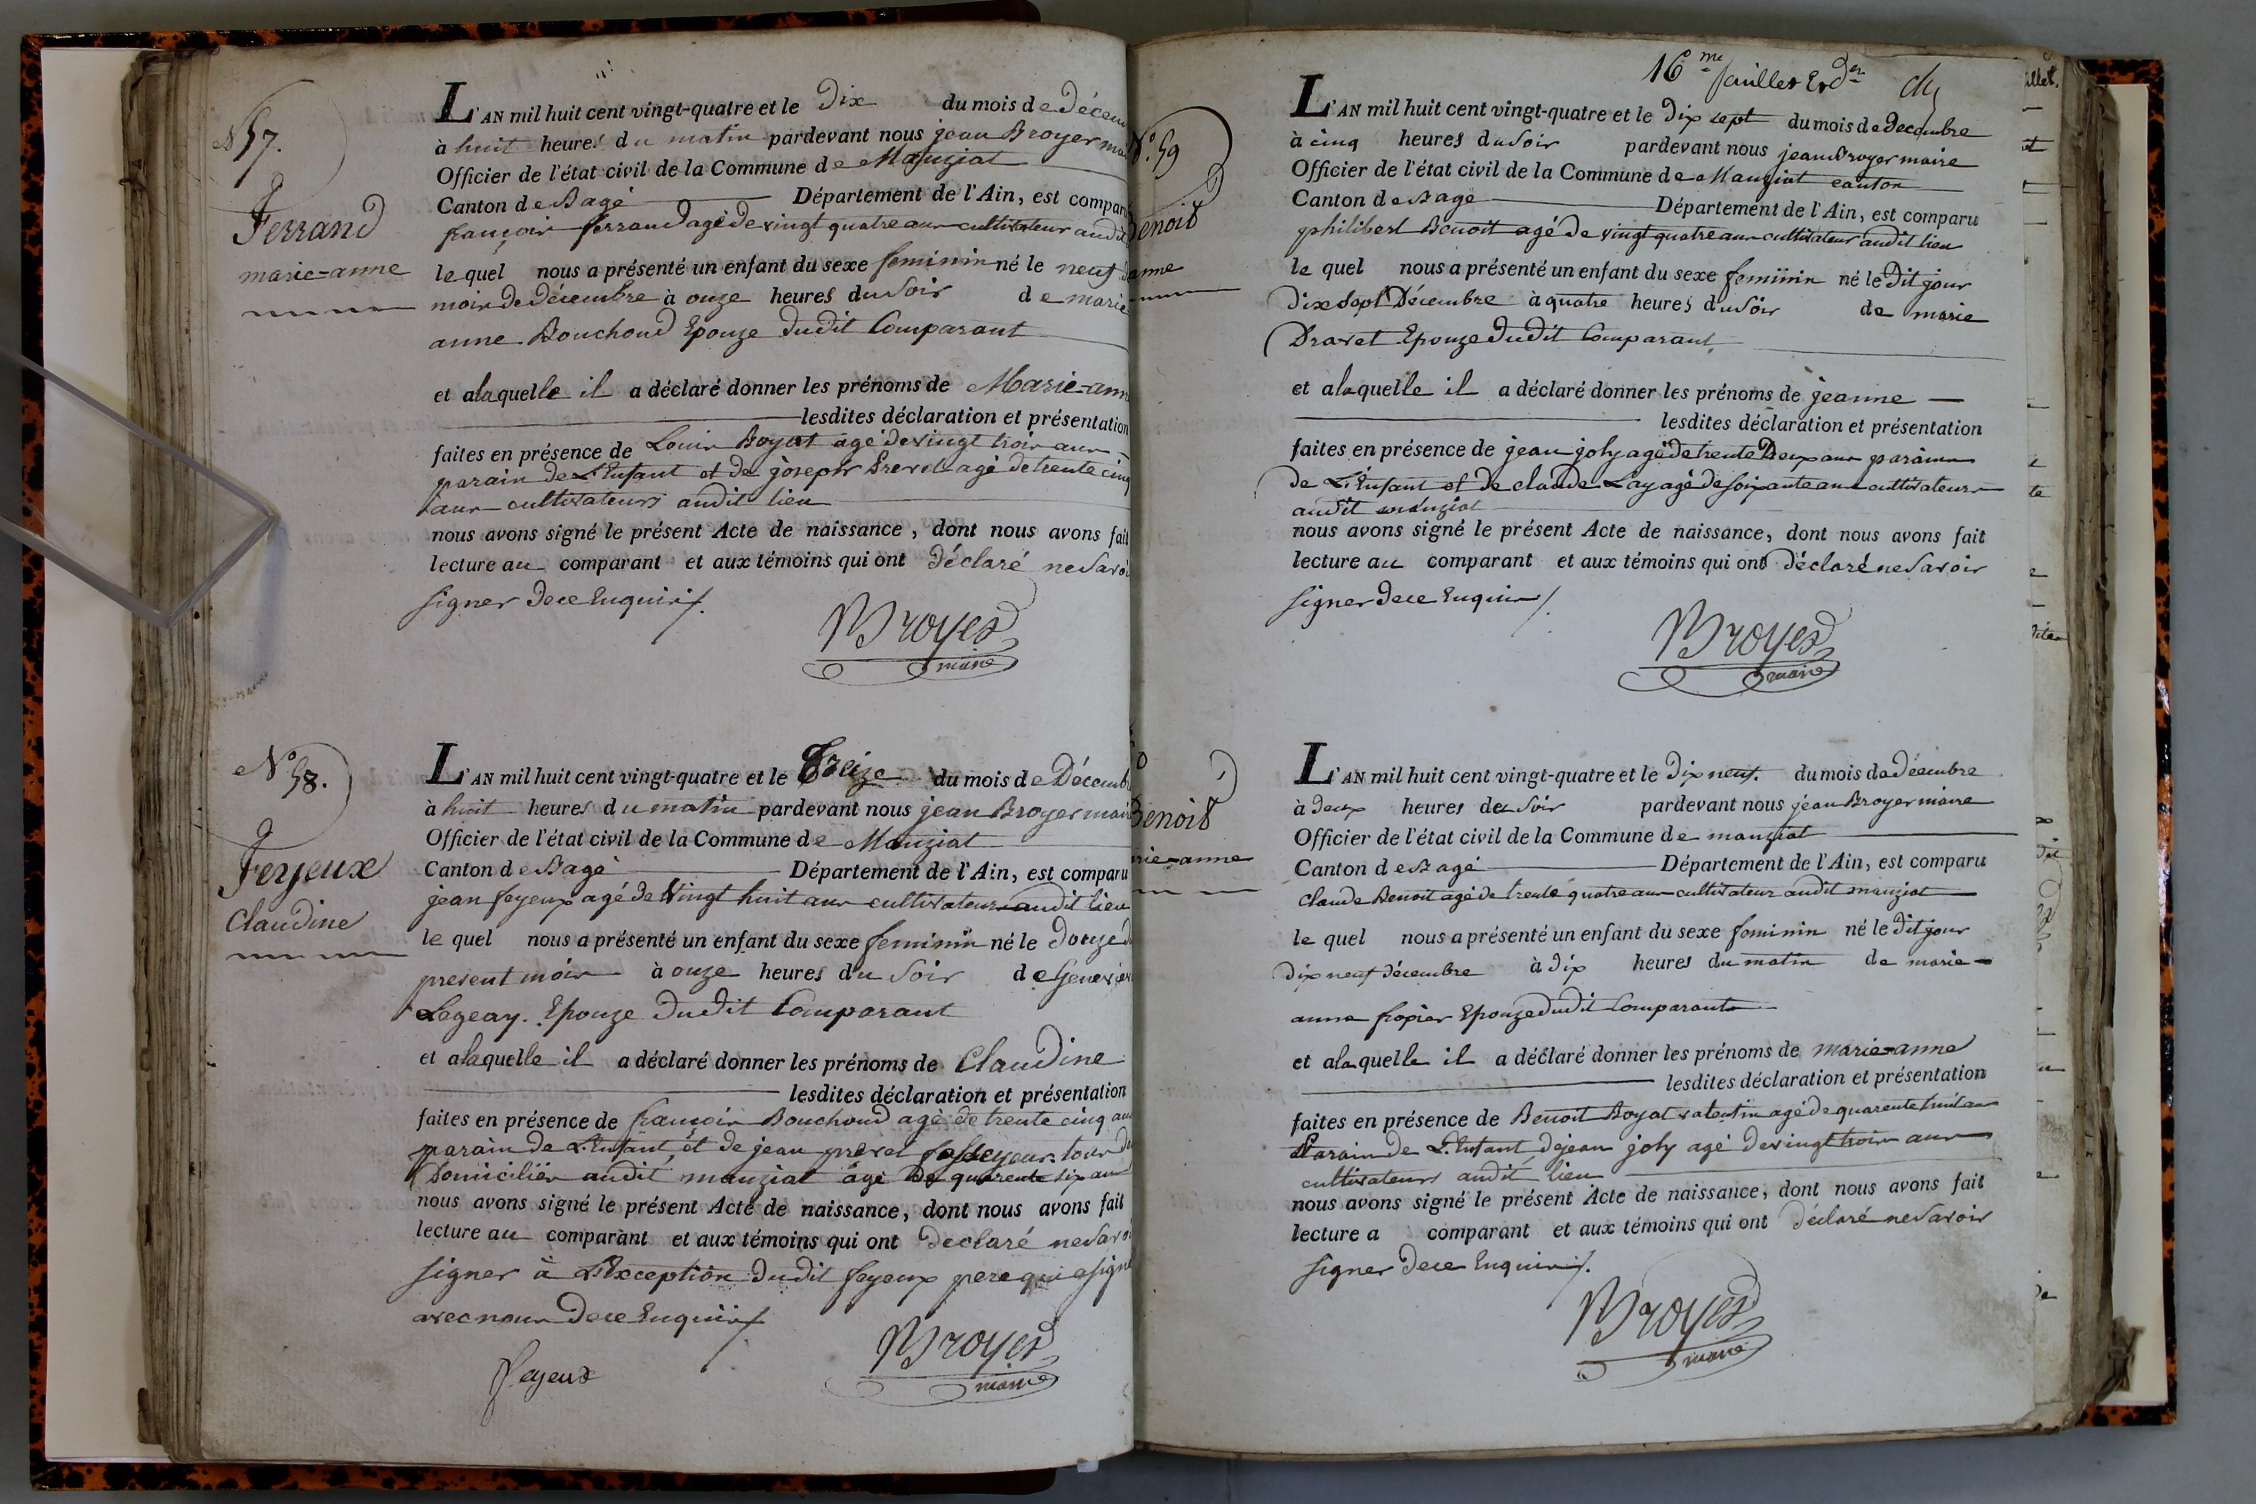 N° 57.
Ferrand
marie=anne
L'AN mil huit cent vingt-quatre et le Dix du mois de Décem
à huit heures du matin pardevant nous jean Broyer mai
Officier de l'état civil de la Commune de Manziat
Canton de Bagé Département de l'Ain, est compar
françois ferrand agé de vingt quatre ans cultivateur audit
le quel nous a présenté un enfant du sexe feminin né le neuf
mois de décembre à onze heures du Soir de marie
anne Bouchoud Epouze dudit Comparant
et a laquelle il a déclaré donner les prénoms de Marie=ann
lesdites déclaration et présentation
faites en présence de Louis Boyat agé de vingt trois ans
parain de L'Enfant et de joseph Prevel agé de trente cinq
ans cultivateurs audit lieu
nous avons signé le présent Acte de naissance, dont nous avons fait
lecture au comparant et aux témoins qui ont déclaré ne Savoi
signer De ce Enquis ./.
Broyer
maire
N° 58.
Feyeux
Claudine
L'AN mil huit cent vingt-quatre et le Treize du mois de Décemb
à huit heures du matin pardevant nous jean Broyer mair
Officier de l'état civil de la Commune de Manziat
Canton de Bagé Département de l'Ain, est comparu
jean feyeux agé de Vingt huit ans cultivateur audit lieu
le quel nous a présenté un enfant du sexe feminin né le douze d
present mois à onze heures du Soir de Geneviev
Logeay. Epouze Dudit Comparant
et a laquelle il a déclaré donner les prénoms de Claudine
lesdites déclaration et présentation
faites en présence de françois Bouchoud agé de trente cinq ans
parain de L'Enfant et de jean prevel fossoyeur tous de
Domiciliés audit manziat agé De quarente six ans
nous avons signé le présent Acte de naissance, dont nous avons fait
lecture au comparant et aux témoins qui ont Declaré ne Savoi
signer à L'Exception Dudit feyeux pere qui a signé
avec nous De ce Enquis ./.
Feyeux
Broyer
maire
16me feuillet
N° 59
Benoit
anne
L'AN mil huit cent vingt-quatre et le Dix sept du mois de Decembre
à cinq heures du Soir pardevant nous jean Broyer maire
Officier de l'état civil de la Commune de Manziat canton
Canton de Bagé Département de l'Ain, est comparu
philibert Benoit agé De vingt quatre ans cultivateur audit lieu
le quel nous a présenté un enfant du sexe feminin né le Dit jour
Dix Sept Décembre à quatre heures du Soir de marie
Dravet Epouze Dudit Comparant
et a laquelle il a déclaré donner les prénoms de jeanne
lesdites déclaration et présentation
faites en présence de jean joly agé de trente Deux ans parain
de L'Enfant et de claude Lay agé de soixante ans cultivateurs
audit manziat
nous avons signé le présent Acte de naissance, dont nous avons fait
lecture au comparant et aux témoins qui ont Déclaré ne Savoir
signer De ce Enquis ./.
Broyer
maire
Benoit
rie=anne
L'AN mil huit cent vingt-quatre et le Dix neuf. du mois de Décembre
à deux heures du Soir pardevant nous jean Broyer maire
Officier de l'état civil de la Commune de manziat
Canton de Bagé Département de l'Ain, est comparu
Claude Benoit agé de trente quatre ans cultivateur audit manziat
le quel nous a présenté un enfant du sexe feminin né le Dit jour
Dix neuf décembre à dix heures du matin de marie
anne fropier Epouze dudit Comparant
et a laquelle il a déclaré donner les prénoms de marie=anne
lesdites déclaration et présentation
faites en présence de Benoit Boyat agé de quarente huit ans
Parain de L'Enfant De jean joly agé de vingt trois ans
cultivateurs audit lieu
nous avons signé le présent Acte de naissance, dont nous avons fait
lecture a comparant et aux témoins qui ont Déclaré ne Savoir
signer De ce Enquis ./.
Broyer
maire